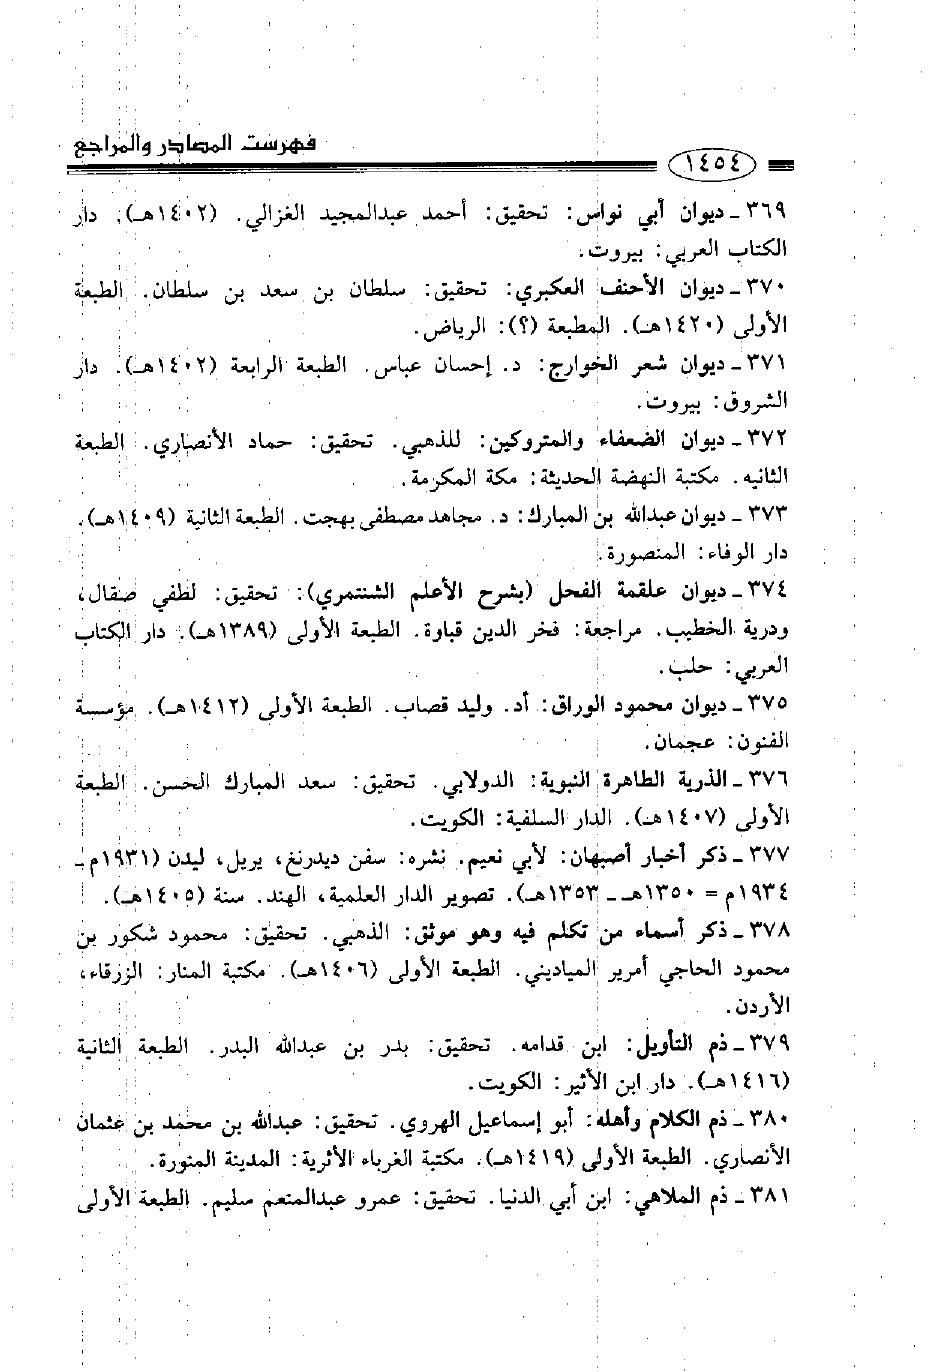 فهرست المصادر والمراجع
١٤٥٤
٣٦٩ ـ ديوان أبي نواس: تحقيق: أحمد عبدالمجيد الغزالي. (١٤٠٢هـ). دار
الكتاب العربي: بيروت.
٣٧٠ ـ ديوان الأحنف العكبري: تحقيق: سلطان بن سعد بن سلطان. الطبعة
الأولى (١٤٢٠هـ). المطبعة (؟): الرياض.
٣٧١ ـ ديوان شعر الخوارج: د. إحسان عباس. الطبعة الرابعة (١٤٠٢هـ). دار
الشروق: بيروت.
٣٧٢ ـ ديوان الضعفاء والمتروكين: للذهبي. تحقيق: حماد الأنصاري. الطبعة
الثانيه. مكتبة النهضة الحديثة: مكة المكرمة.
٣٧٣ ـ ديوان عبدالله بن المبارك: د. مجاهد مصطفى بهجت. الطبعة الثانية (١٤٠٩هـ).
دار الوفاء: المنصورة.
٣٧٤ ـ ديوان علقمة الفحل (بشرح الأعلم الشنتمري): تحقيق: لطفي صقال،
ودرية الخطيب. مراجعة: فخر الدين قباوة. الطبعة الأولى (١٣٨٩هـ). دار الكتاب
العربي: حلب.
٣٧٥ ـ ديوان محمود الوراق: أد. وليد قصاب. الطبعة الأولى (١٤١٢هـ). مؤسسة
الفنون: عجمان.
٣٧٦ ـ الذرية الطاهرة النبوية: الدولابي. تحقيق: سعد المبارك الحسن. الطبعة
الأولى (١٤٠٧هـ). الدار السلفية: الكويت.
٣٧٧ ـ ذكر أخبار أصبهان: لأبي نعيم. نشره: سفن ديدرنغ، يريل، ليدن (١٩٣١م ـ
١٩٣٤م = ١٣٥٠هـ ـ ١٣٥٣هـ). تصوير الدار العلمية، الهند. سنة (١٤٠٥هـ).
٣٧٨ ـ ذكر أسماء من تكلم فيه وهو موثق: الذهبي. تحقيق: محمود شكور بن
محمود الحاجي أمرير المياديني. الطبعة الأولى (١٤٠٦هـ). مكتبة المنار: الزرقاء،
الأردن.
٣٧٩ ـ ذم التأويل: ابن قدامه. تحقيق: بدر بن عبدالله البدر. الطبعة الثانية
(١٤١٦هـ). دار ابن الأثير: الكويت.
٣٨٠ ـ ذم الكلام وأهله: أبو إسماعيل الهروي. تحقيق: عبدالله بن محمد بن عثمان
الأنصاري. الطبعة الأولى (١٤١٩هـ). مكتبة الغرباء الأثرية: المدينة المنورة.
٣٨١ ـ ذم الملاهي: ابن أبي الدنيا. تحقيق: عمرو عبدالمنعم سليم. الطبعة الأولى